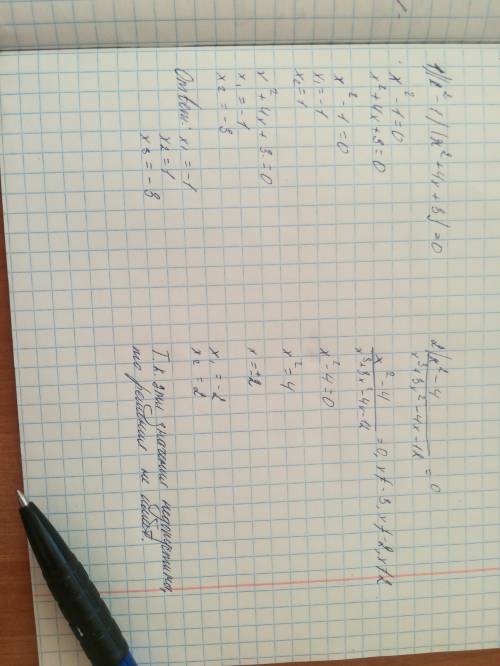 1) (x² - 1) / (x² + 4x + 3) = 0
x² - 1 = 0
x² + 4x + 3 = 0
x² - 1 = 0
x₁ = -1
x₂ = 1
x² + 4x + 3 = 0
x₁ = -1
x₂ = -3
Ответ: x₁ = -1
x₂ = 1
x₃ = -3
2) x² - 4 / x³ + 3x² - 4x - 12 = 0
x² - 4 / x³ + 3x² - 4x - 12 = 0, x ≠ -3, x ≠ -2, x ≠ 2
x² - 4 = 0
x² = 4
x = ±2
x₁ = -2
x₂ = 2
Т.к эти значения недопустимы,
то решения не имеет.